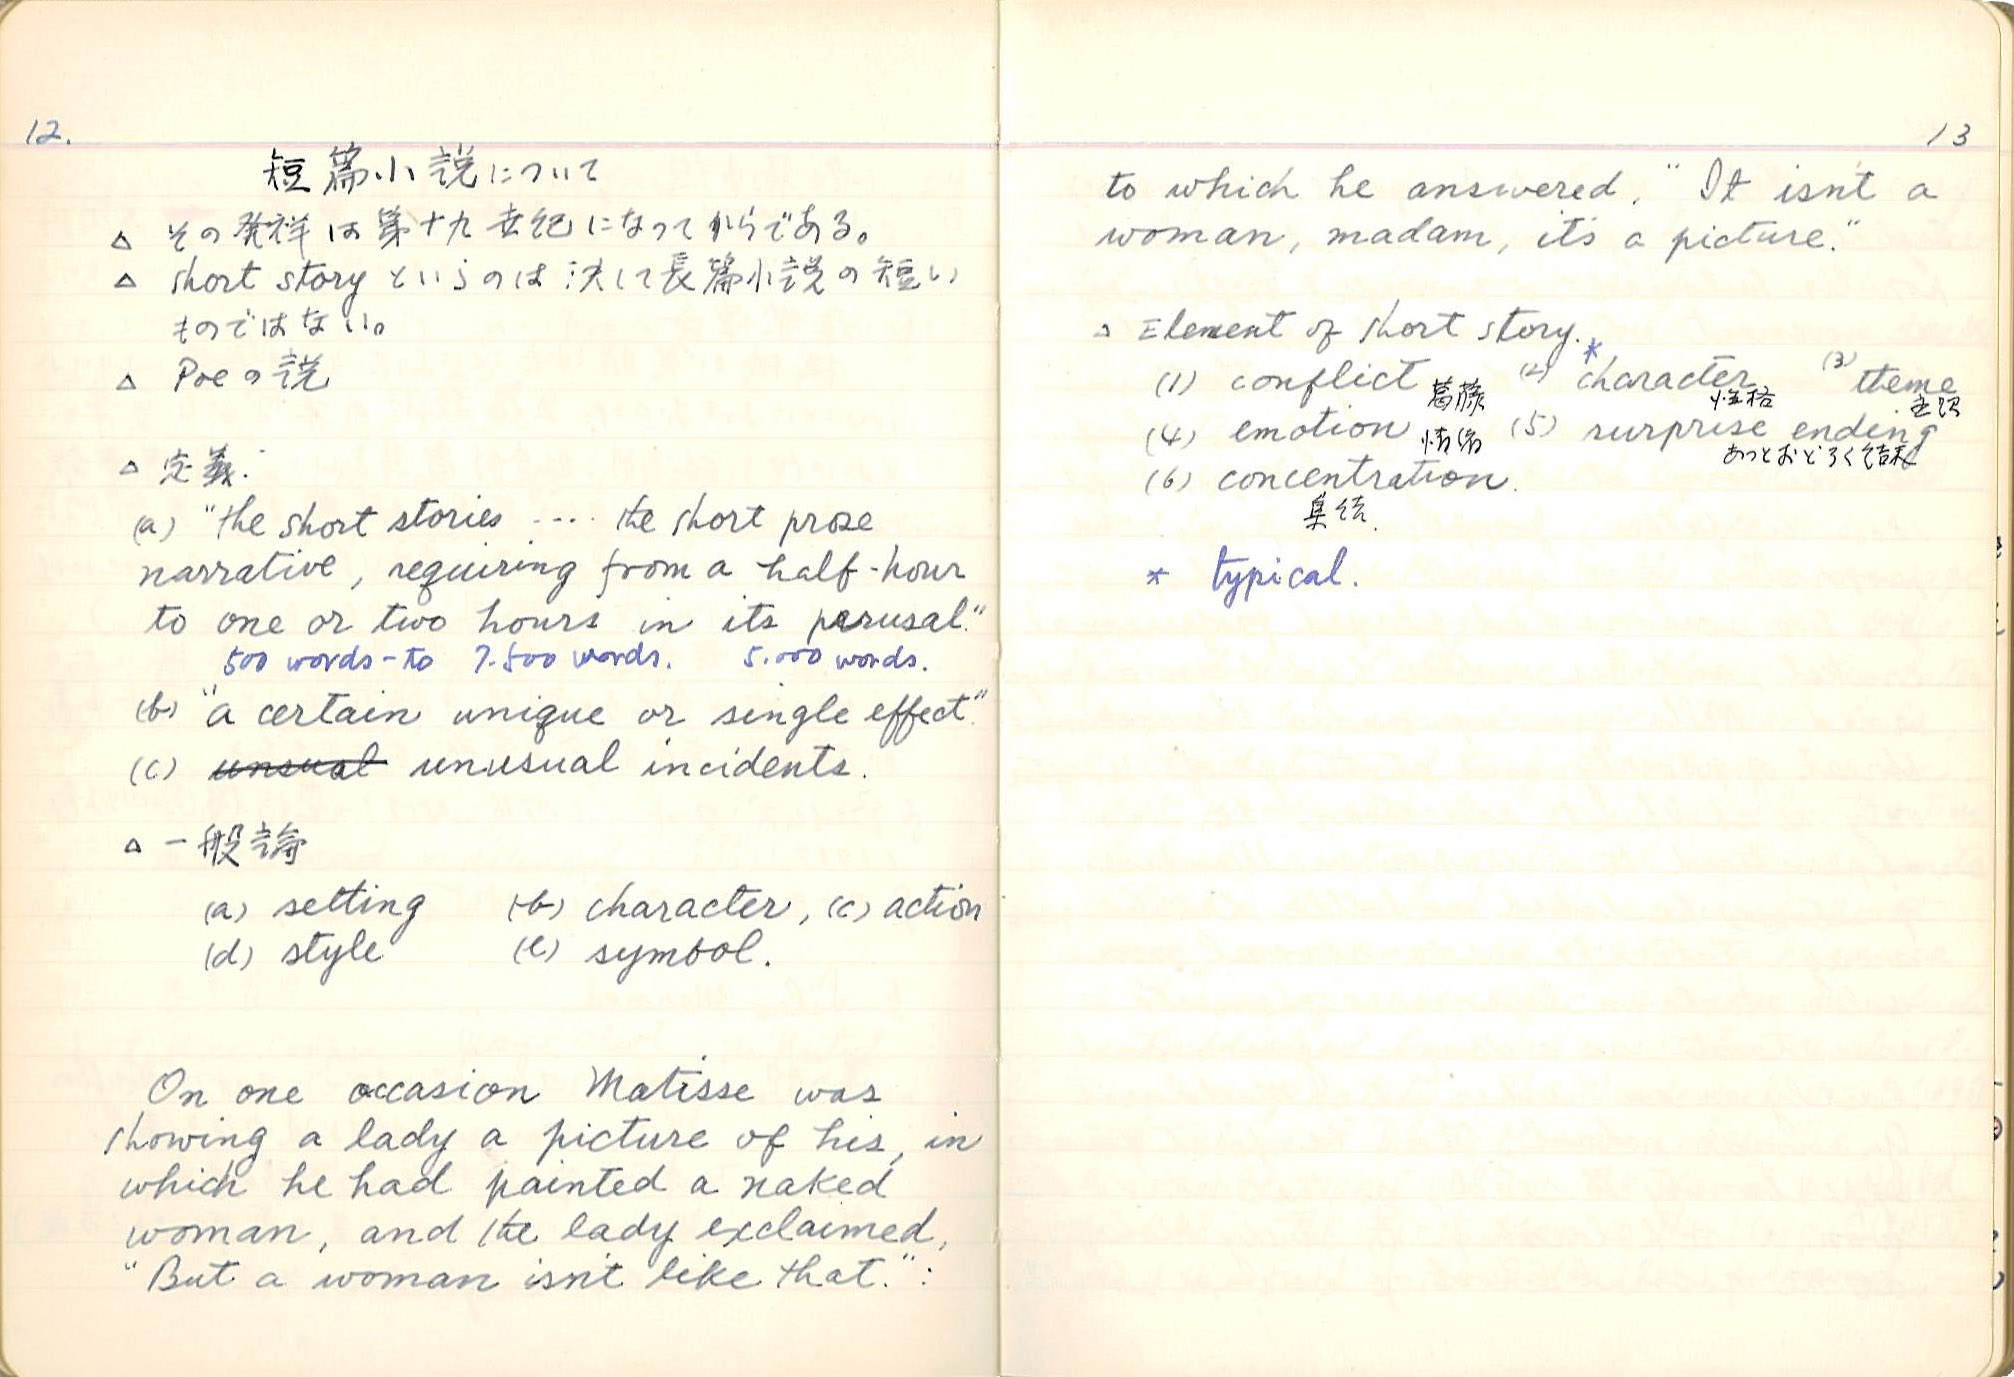 12.
短篇小説について
△ その発祥は第十九世紀になってからである。
△ short story というのは決して長篇小説の短い
ものではない。
△ Poeの説
△ 定義:
(a) "the short stories .... the short prose
narrative, requiring from a half-hour
to one or two hours in its perusal."
500 words-to 7.500 words. 5.000 words.
(b) "a certain unique or single effect."
(c) unsual unusual incidents.
△ 一般論
(a) setting (b) character, (c) action
(d) style (e) symbol.
On one occasion Matisse was
showing a lady a picture of his, in
which he had painted a naked
woman, and the lady exclaimed,
"But a woman isn't like that.":
13
to which he answered, "It isn't a
woman, madam, it's a picture."
△ Element of short story.
(1) conflict 葛藤 (2) *character 性格 (3) theme 主題
(4) emotion 情緒 (5) surprise ending あっとおどろく結末
(6) concentration.
集結.
* typical.